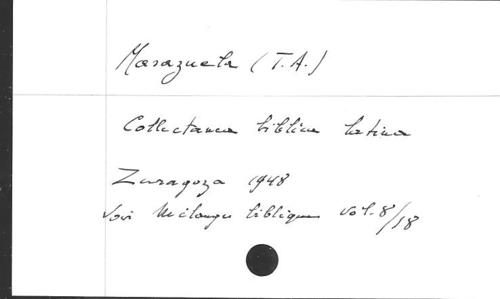 Marazuela (T.A.)
Collectanea biblica latina
Zaragoza 1948
Voir Mélanges bibliques vol. 8/18